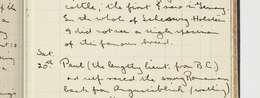 cattle, the first I saw in Germany
In the whole of Schleswig Holstein
I did not see a single specimen
of the famous breed.
Sat.
20th Paul (the lengthy lieut. from B.C.)
and self raced the
back from (walking)